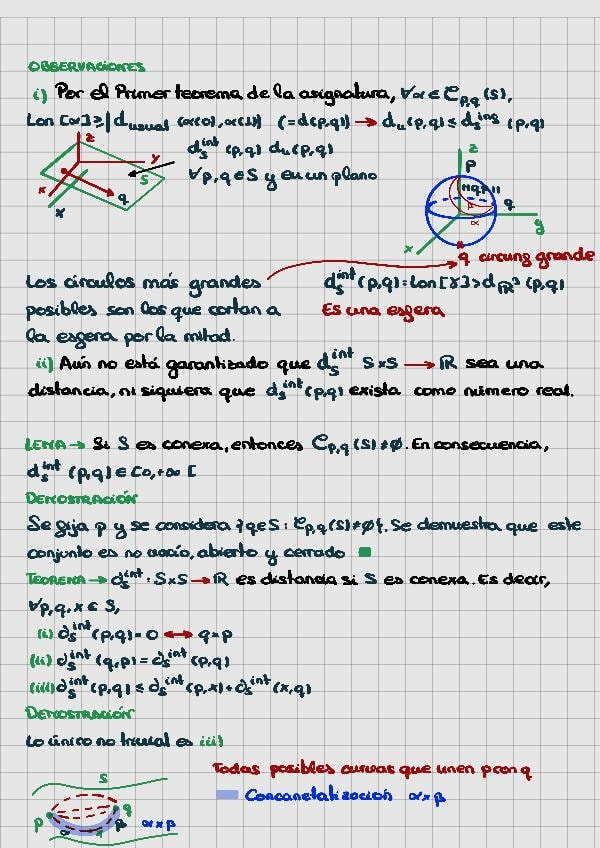 OBSERVACIONES
i) Por el Primer teorema de la asignatura, ∀α ∈ C_{p,q} (S),
Lon [α] ≥ | d_{usual} (α(0), α(1)) (= d(p,q)) → d_u (p,q) ≤ d_S^{int} (p,q)
z
y
x
S
q
d_S^{int} (p,q) d_u (p,q)
∀p,q ∈ S y en un plano
z
p
q
α
x
y
q circung grande
Los círculos más grandes
posibles son los que cortan a
la esfera por la mitad.
d_S^{int} (p,q) = Lon [γ] > d_{ℝ³} (p,q)
Es una esfera
ii) Aún no está garantizado que d_S^{int} S×S → ℝ sea una
distancia, ni siquiera que d_S^{int} (p,q) exista como número real.
LEMA → Si S es conexa, entonces C_{p,q} (S) ≠ ∅. En consecuencia,
d_S^{int} (p,q) ∈ [0,+∞ [
DEMOSTRACIÓN
Se fija p y se considera {q∈S : C_{p,q} (S) ≠ ∅}. Se demuestra que este
conjunto es no vacío, abierto y cerrado ■
TEOREMA → d_S^{int} : S×S → ℝ es distancia si S es conexa. Es decir,
∀p,q,x ∈ S,
(i) d_S^{int} (p,q) = 0 ↔ q=p
(ii) d_S^{int} (q,p) = d_S^{int} (p,q)
(iii) d_S^{int} (p,q) ≤ d_S^{int} (p,x) + d_S^{int} (x,q)
DEMOSTRACIÓN
Lo único no trivial es iii)
Todas posibles curvas que unen p con q
S
p
q
α
β
α×β
Concanetalización α×β